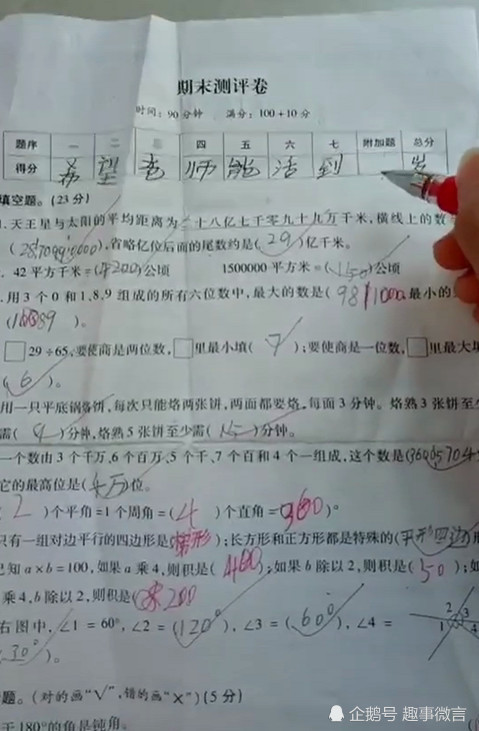 期末测评卷
时间：90分钟 满分：100+10分
题序 一 二 三 四 五 六 七 附加题 总分
得分 希 望 老 师 能 活 到 岁
填空题。(23分)
天王星与太阳的平均距离为二十八亿七千零九十九万千米，横线上的数
(2870990000)，省略亿位后面的尾数约是(29)亿千米。
42平方千米=(4200)公顷 1500000平方米=(150)公顷
用3个0和1,8,9组成的所有六位数中，最大的数是(981000 最小的
(100089)。
□29÷65，要使商是两位数，□里最小填(7)；要使商是一位数，□里最大
(6)。
用一只平底锅烙饼，每次只能烙两张饼，两面都要烙，每面3分钟。烙熟3张饼至少
需()分钟，烙熟5张饼至少需(15)分钟。
一个数由3个千万、6个百万、5个千、7个百和4个一组成，这个数是(36005704
它的最高位是(千万)位。
2)个平角=1个周角=(4)个直角=360)°
只有一组对边平行的四边形是(梯形)；长方形和正方形都是特殊的(平行四边形
已知a×b=100，如果a乘4，则积是(400)；如果b除以2，则积是(50)；如
乘4，b除以2，则积是(200
右图中，∠1=60°，∠2=(120°)，∠3=(60°)，∠4=
30°)。
1 2 3 4
题。(对的画"√"，错的画"×")(5分)
于180°的角是钝角。
企鹅号 趣事微言